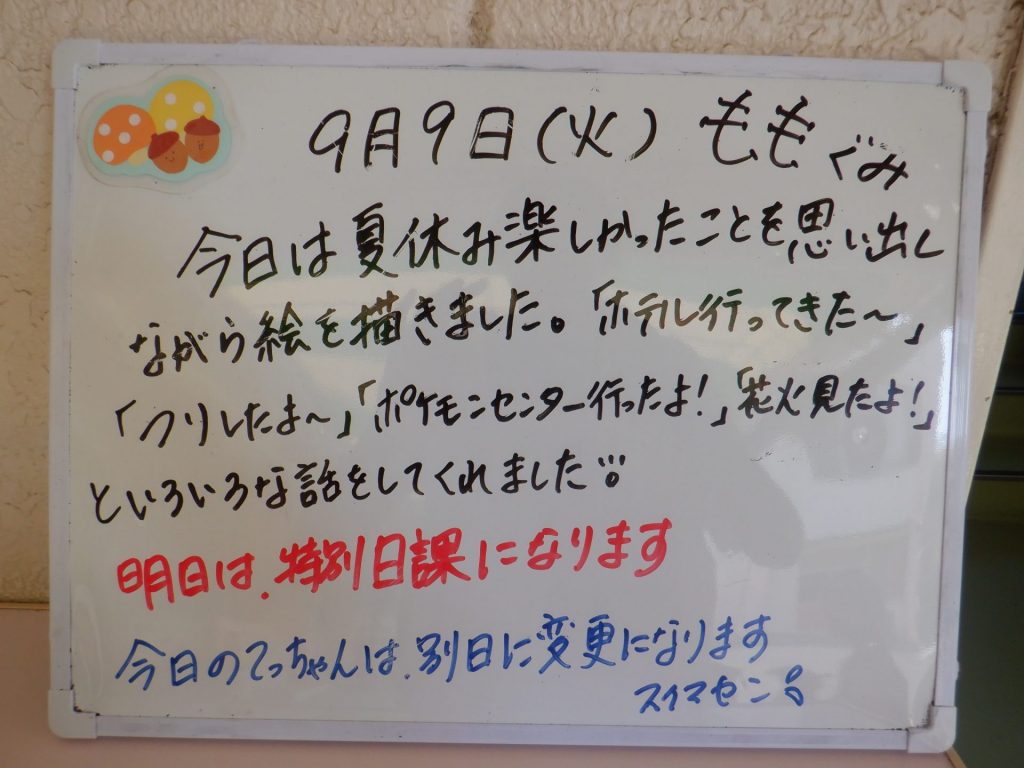 9月9日(火) ももぐみ
今日は夏休み楽しかったことを思い出し
ながら絵を描きました。「ホテル行ってきた〜」
「つりしたま〜」「ポケモンセンター行ったよ！」「花火見たよ！」
といろいろな話をしてくれました
明日は、特別日課になります
今日のてっちゃんは、別日に変更になります
スイマセン